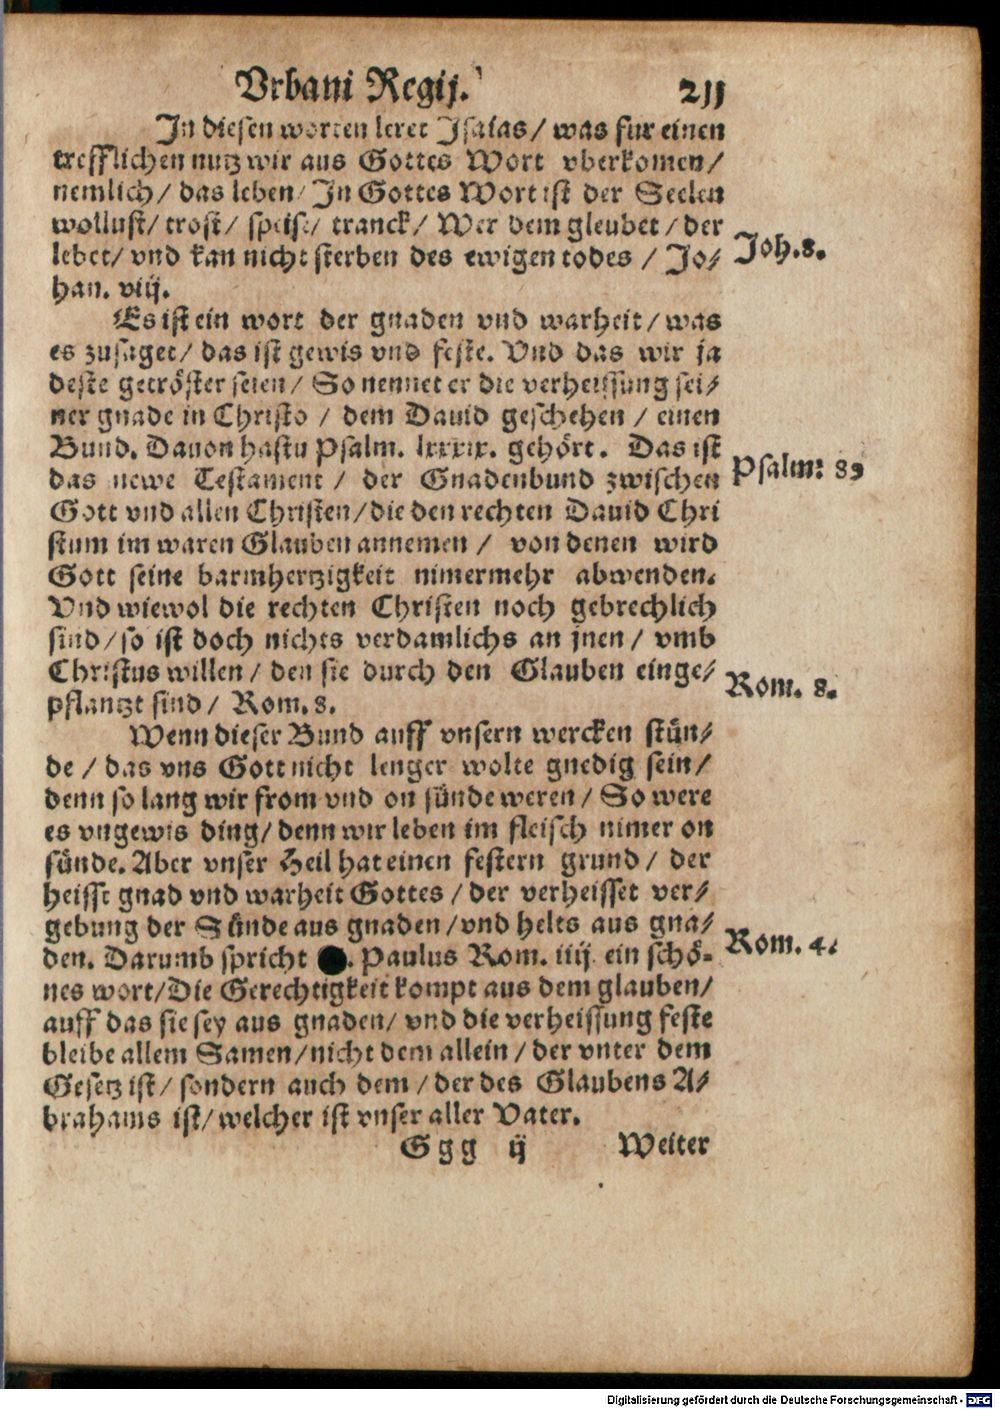 Vrbani Regij. 211
In diesen worten leret Isaias/ was fur einen
trefflichen nutz wir aus Gottes Wort vberkomen/
nemlich/ das leben/ In Gottes Wort ist der Seelen
wollust/ trost/ speise/ tranck/ Wer dem gleubet/ der
lebet/ vnd kan nicht sterben des ewigen todes/ Jo/
Joh.8.
han. viij.
Es ist ein wort der gnaden vnd warheit/ was
es zusaget/ das ist gewis vnd feste. Vnd das wir ja
deste getröster seien/ So nennet er die verheissung sei/
ner gnade in Christo/ dem Dauid geschehen/ einen
Bund. Dauon hastu Psalm. lxxxix. gehört. Das ist
Psalm: 89
das newe Testament/ der Gnadenbund zwischen
Gott vnd allen Christen/ die den rechten Dauid Chri
stum im waren Glauben annemen/ von denen wird
Gott seine barmhertzigkeit nimermehr abwenden.
Vnd wiewol die rechten Christen noch gebrechlich
sind/ so ist doch nichts verdamlichs an jnen/ vmb
Christus willen/ den sie durch den Glauben einge/
Rom. 8.
pflantzt sind/ Rom. 8.
Wenn dieser Bund auff vnsern wercken stün/
de/ das vns Gott nicht lenger wolte gnedig sein/
denn so lang wir from vnd on sünde weren/ So were
es vngewis ding/ denn wir leben im fleisch nimer on
sünde. Aber vnser Heil hat einen festern grund/ der
heisst gnad vnd warheit Gottes/ der verheisset ver/
gebung der Sünde aus gnaden/ vnd helts aus gna/
den. Darumb spricht . Paulus Rom. iiij ein schö-
Rom. 4.
nes wort/ Die Gerechtigkeit kompt aus dem glauben/
auff das sie sey aus gnaden/ vnd die verheissung feste
bleibe allem Samen/ nicht dem allein/ der vnter dem
Gesetz ist/ sondern auch dem/ der des Glaubens A/
brahams ist/ welcher ist vnser aller Vater.
Ggg ij Weiter
Digitalisierung gefördert durch die Deutsche Forschungsgemeinschaft - DFG